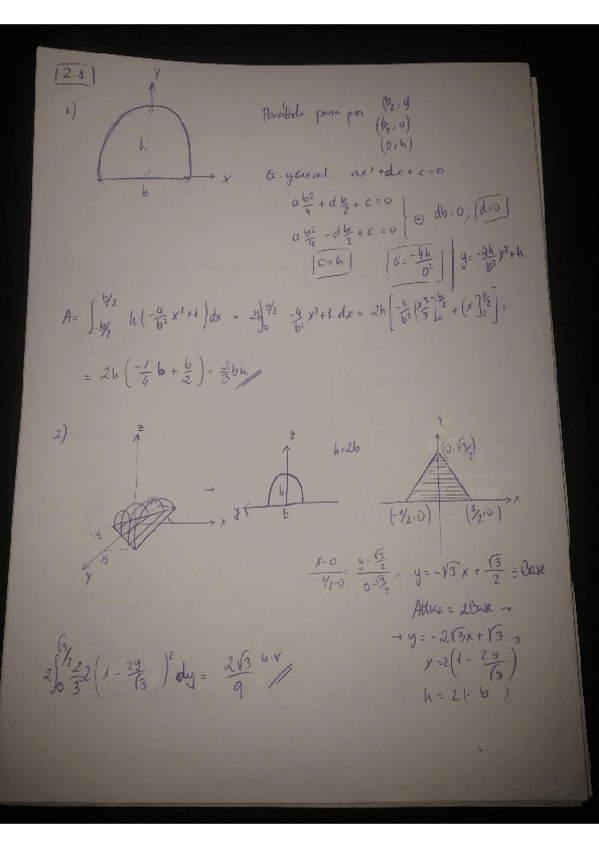 2.1
1)
Y
h
b
x
Parábola pasa por (b/2, 0)
(b/2, 0)
(0, h)
Ec. general: ax² + dx + c = 0
a b²/4 + d b/2 + c = 0
a b²/4 - d b/2 + c = 0
db = 0, d = 0
c = h
a = -4h/b²
y = -4h/b² x² + h
A = ∫_{-b/2}^{b/2} h(-4/b² x² + 1) dx = 2h ∫_0^{b/2} -4/b² x² + 1 dx = 2h [-4/b² (x³/3]_0^{b/2} + (x]_0^{b/2}] =
= 2h (-1/6 b + b/2) = 2/3 bh
2)
z
x
y
-1/2
1/2
→
z
y
h
b
h=2b
Y
(0, √3/2)
x
(-1/2, 0)
(1/2, 0)
x-0 / 1/2-0 = y-√3/2 / 0-√3/2, y = -√3 x + √3/2 = Base
Altura = 2 Base
→ y = -2√3x + √3
x = 2(1 - 2y/√3)
h = 2(· b )
2 ∫_0^{√3/2} 2/3 2 (1 - 2y/√3)² dy = 2√3/9 u.v